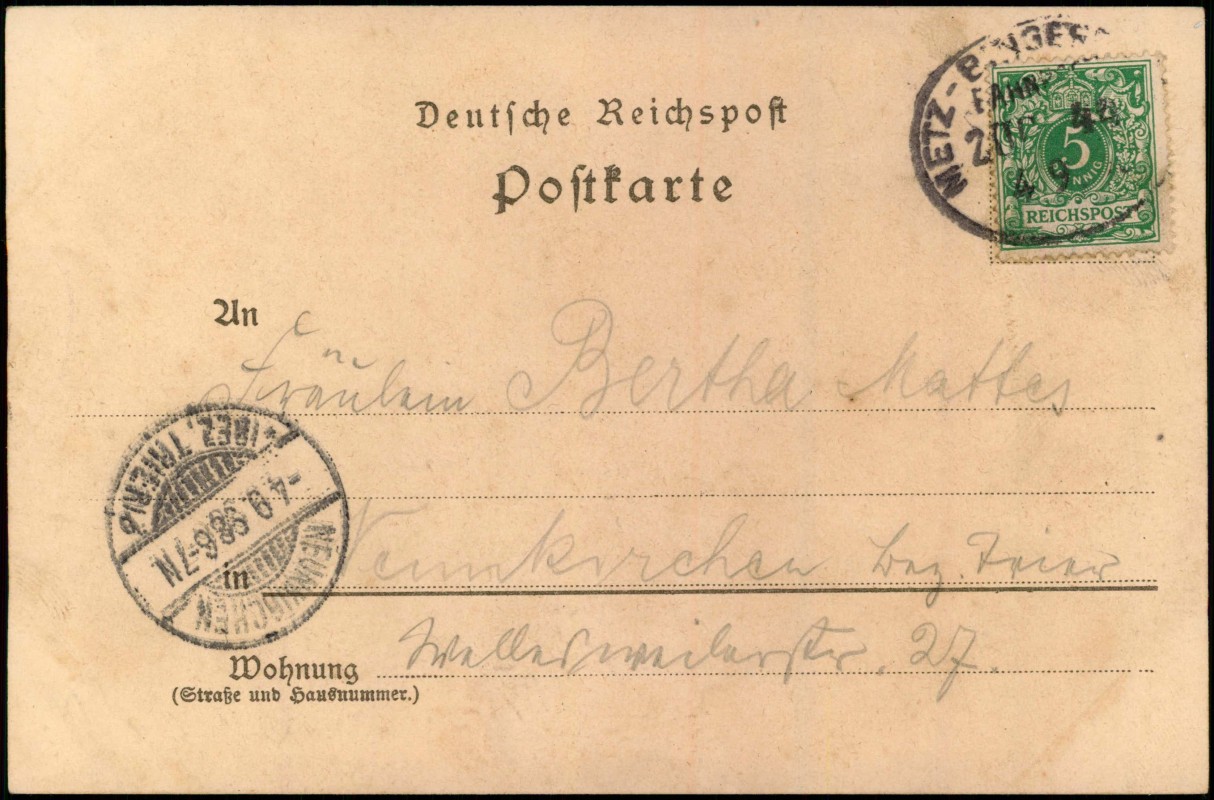 Deutsche Reichspost
Postkarte
METZ-BINGER
BAHNP
ZUG 44
4 9
5
PFENNIG
REICHSPOST
An
Fräulein Bertha Mattes
NEUNKIRCHEN
*(BEZ. TRIER)
-4.9.98 6-7N
in Neunkirchen Bez. Trier
Wohnung Wellesweilerstr. 27.
(Straße und Hausnummer.)